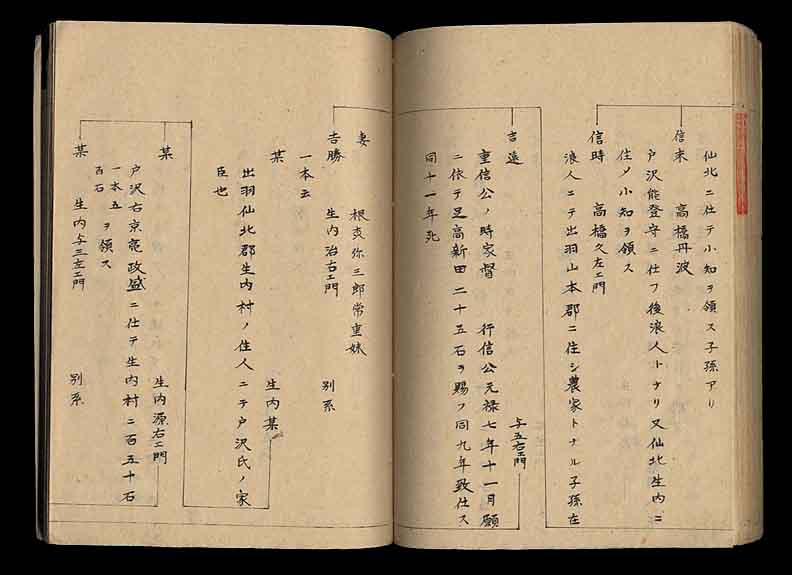 仙北ニ仕テ小知ヲ領ス子孫アリ
信来　高橋丹波
戸沢能登守ニ仕フ後浪人トナリ又仙北生内ニ
住ソ小知ヲ領ス
信時　高橋久左エ門
浪人ニテ出羽山本郡ニ住シ農家トナル子孫在
与五右エ門
吉遠
重信公ノ時家督　行信公元禄七年十一月願
ニ依テ足高新田二十五石ヲ賜フ同九年致仕ス
同十一年死
妻　根炎弥三郎常重妹
吉勝　生内治右エ門　別系
一本云
某　生内某
出羽仙北郡生内村ノ住人ニテ戸沢氏ノ家
臣也
某　生内源右エ門
戸沢右京亮政盛ニ仕テ生内村ニ百五十石
一本五百石
ヲ領ス
某　生内与三左エ門　別系